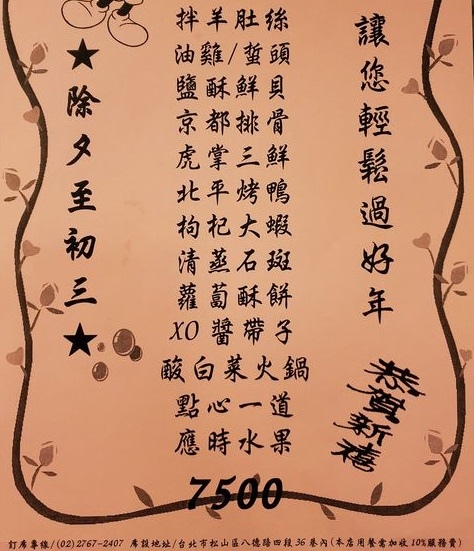 讓您輕鬆過好年
恭賀新禧
拌羊肚絲
油雞/蜇頭
鹽酥鮮貝
京都排骨
虎掌三鮮
北平烤鴨
枸杞大蝦
清蒸石斑
蘿蔔酥餅
XO醬帶子
酸白菜火鍋
點心一道
應時水果
7500
★除夕至初三★
訂席專線/(02)2767-2407 席設地址/台北市松山區八德路四段36巷內(本店用餐需加收10%服務費)